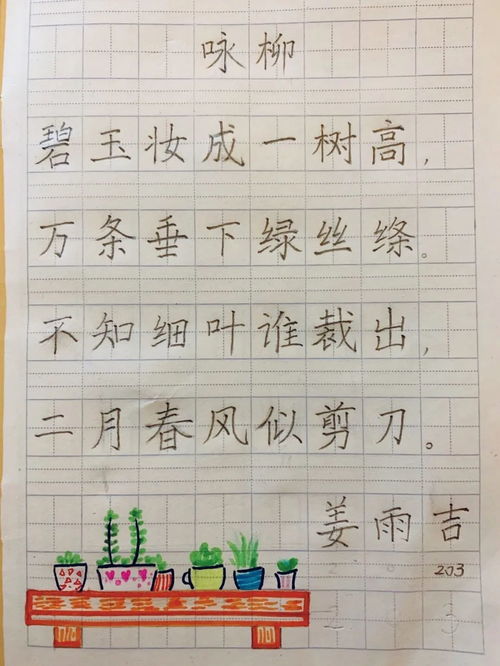 咏柳
碧玉妆成一树高,
万条垂下绿丝绦。
不知细叶谁裁出,
二月春风似剪刀。
姜雨吉
203